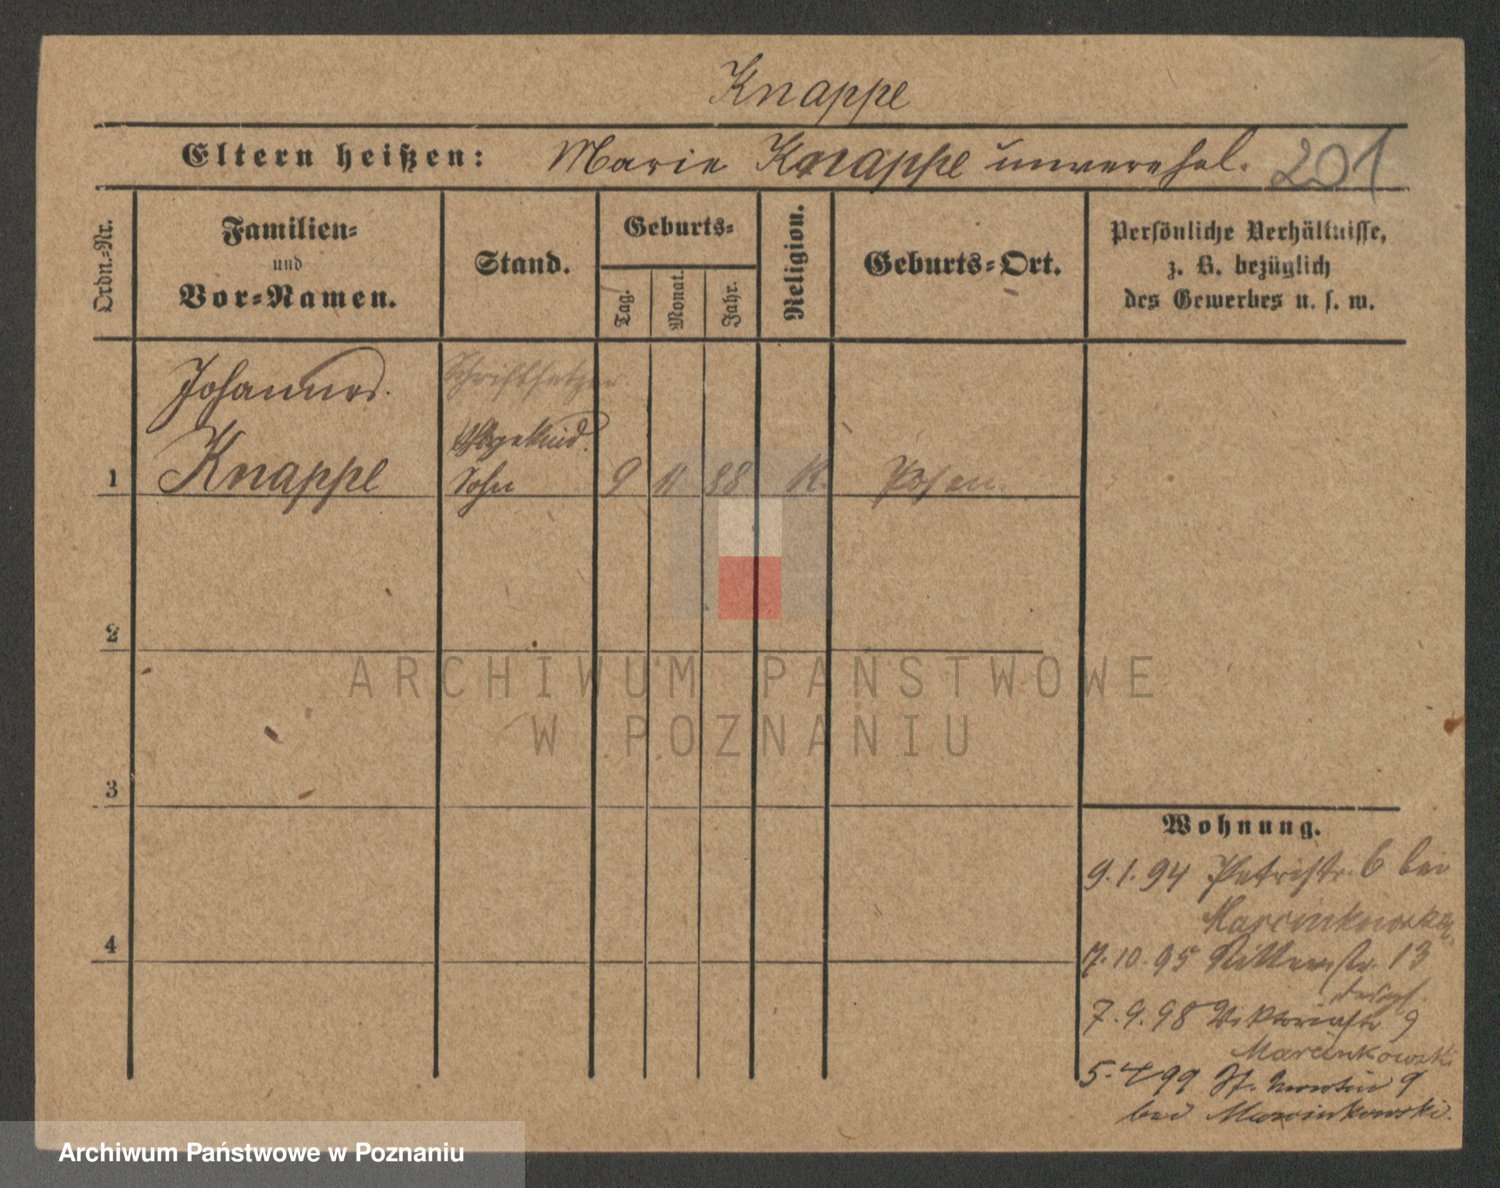 Knappe
Eltern heißen: Marie Knappe unverehel. 201
Ordn.-Nr.
Familien-
und
Vor-Namen.
Stand.
Geburts-
Tag.
Monat.
Jahr.
Religion.
Geburts-Ort.
Persönliche Verhältnisse,
z. B. bezüglich
des Gewerbes u. s. w.
Johannes
Schriftsetzer
Knappe
1
Sohn
9 11 88 K. Posen
2
3
4
ARCHIWUM PAŃSTWOWE
W POZNANIU
Wohnung.
9.1.94 Petristr. 6 bei
Marcinkowski
7.10.95 Ritterstr. 13
desgl.
7.9.98 Viktoriastr 9
Marcinkowski
5.4 99 St. Martin 9
bei Marcinkowski.
Archiwum Państwowe w Poznaniu